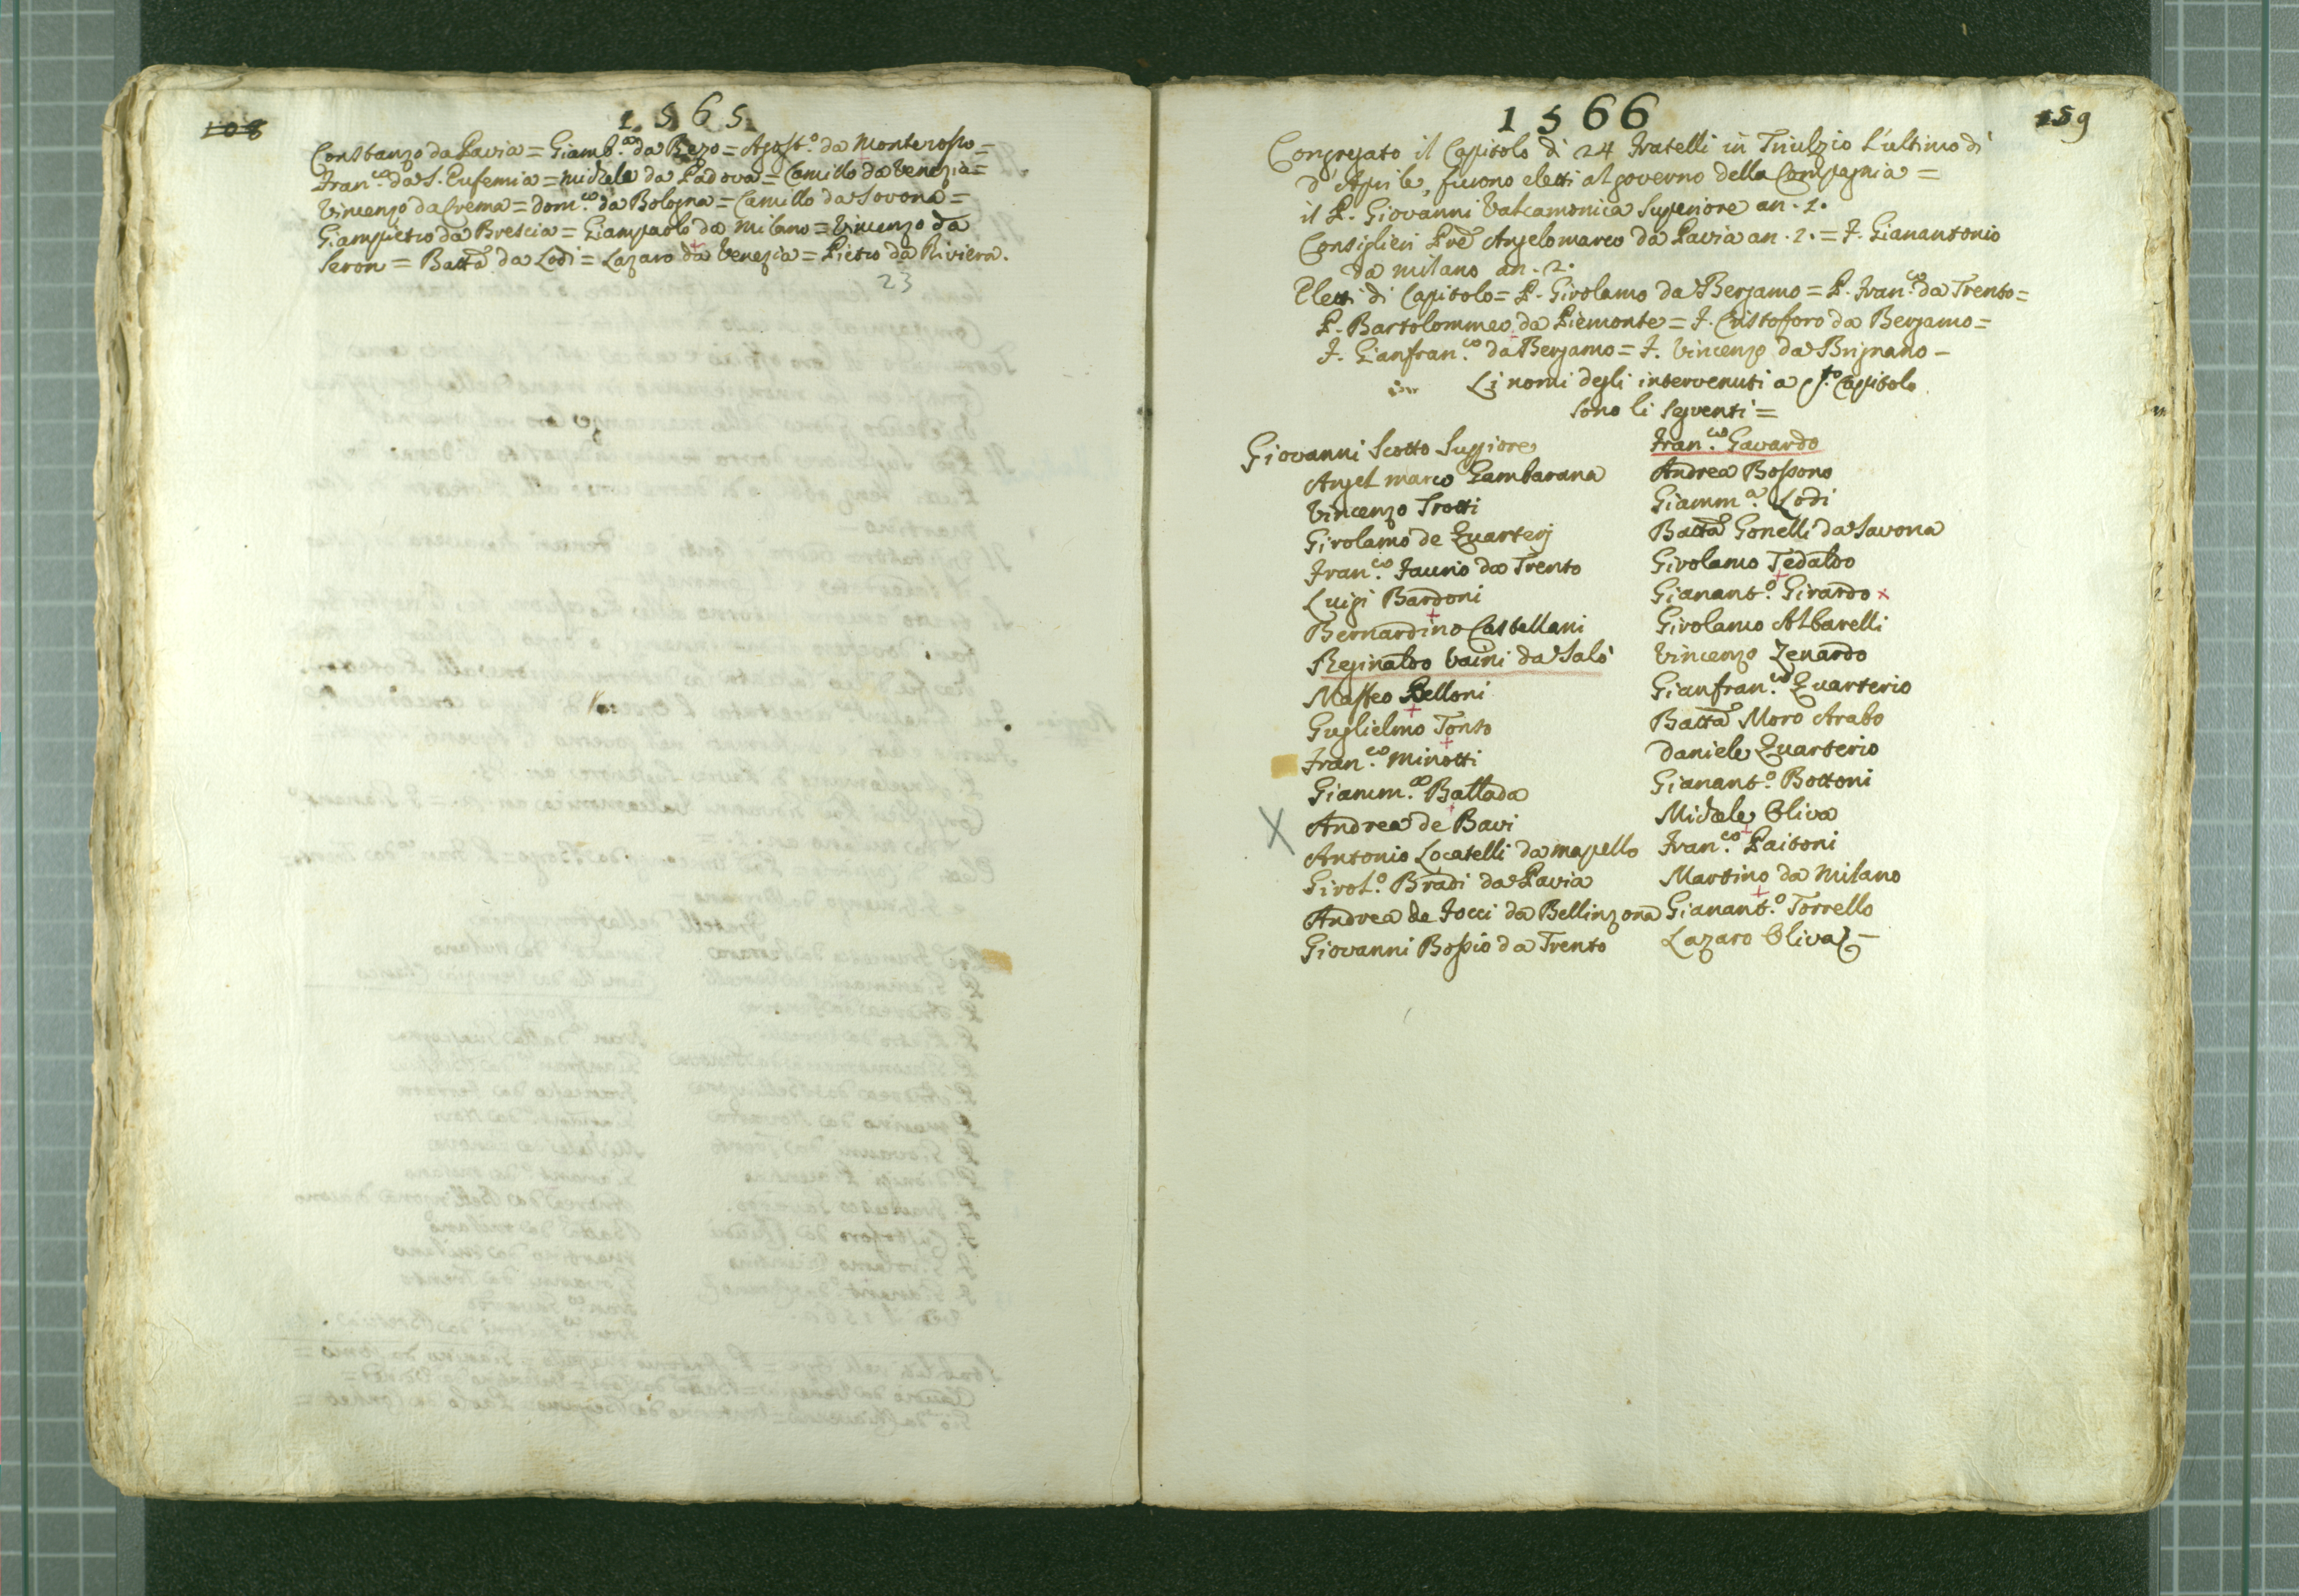 108
1565
Constanzo da Pavia = Giamb.a da Bezo = Agost.o da Monterosso =
Fran.co da S. Eufemia = Michele da Padova = Camillo da Venezia =
Vincenzo da Crema = Dom.co da Bologna = Camillo da Sovona =
Giampietro da Brescia = Giampaolo da Milano = Vincenzo da
Seron = Batta da Lodi = Lazaro da Venezia = Pietro da Riviera.
23
1566
159
Congregato il Capitolo di 24 Fratelli in Triulzio L'ultimo di
d'Aprile, furono eletti al governo della Compagnia =
il P. Giovanni Valcamonica Superiore an. 1.
Consiglieri Pre Angelomarco da Pavia an. 2. = F. Gianantonio
da Milano an. 2.
Eletti di Capitolo = P. Girolamo da Bergamo = P. Fran.co da Trento =
P. Bartolommeo da Piemonte = F. Cristoforo da Bergamo =
F. Gianfran.co da Bergamo = F. Vincenzo da Brignano –
Li nomi degli intervenuti a q.to Capitolo
sono li seguenti =
Giovanni Scotto Suppiore
Angel marco Gambarana
Vincenzo Trotti
Girolamo de Quarterj
Fran.co Faurio da Trento
Luigi Bardoni
Bernardino Castellani
Reginaldo Vaini da Salò
Matteo Belloni
Guglielmo Tonso
Fran.co Minotti
Giamm.a Battada
X Andrea de Bavi
Antonio Locatelli da mapello
Girol.o Bradi da Pavia
Andrea de Focci da Bellinzona
Giovanni Bossio da Trento
Fran.co Gavardo
Andrea Bossono
Giamm.a Lodi
Batta Gonelli da Savona
Girolamo Tedaldo
Gianant.o Girardo x
Girolamo Albarelli
Vincenzo Zenardo
Gianfran.co Quarterio
Batta Moro Arabo
Daniele Quarterio
Gianant.o Bottoni
Michele Oliva
Fran.co Paitoni
Martino da Milano
Gianant.o Torrello
Lazaro Oliva –